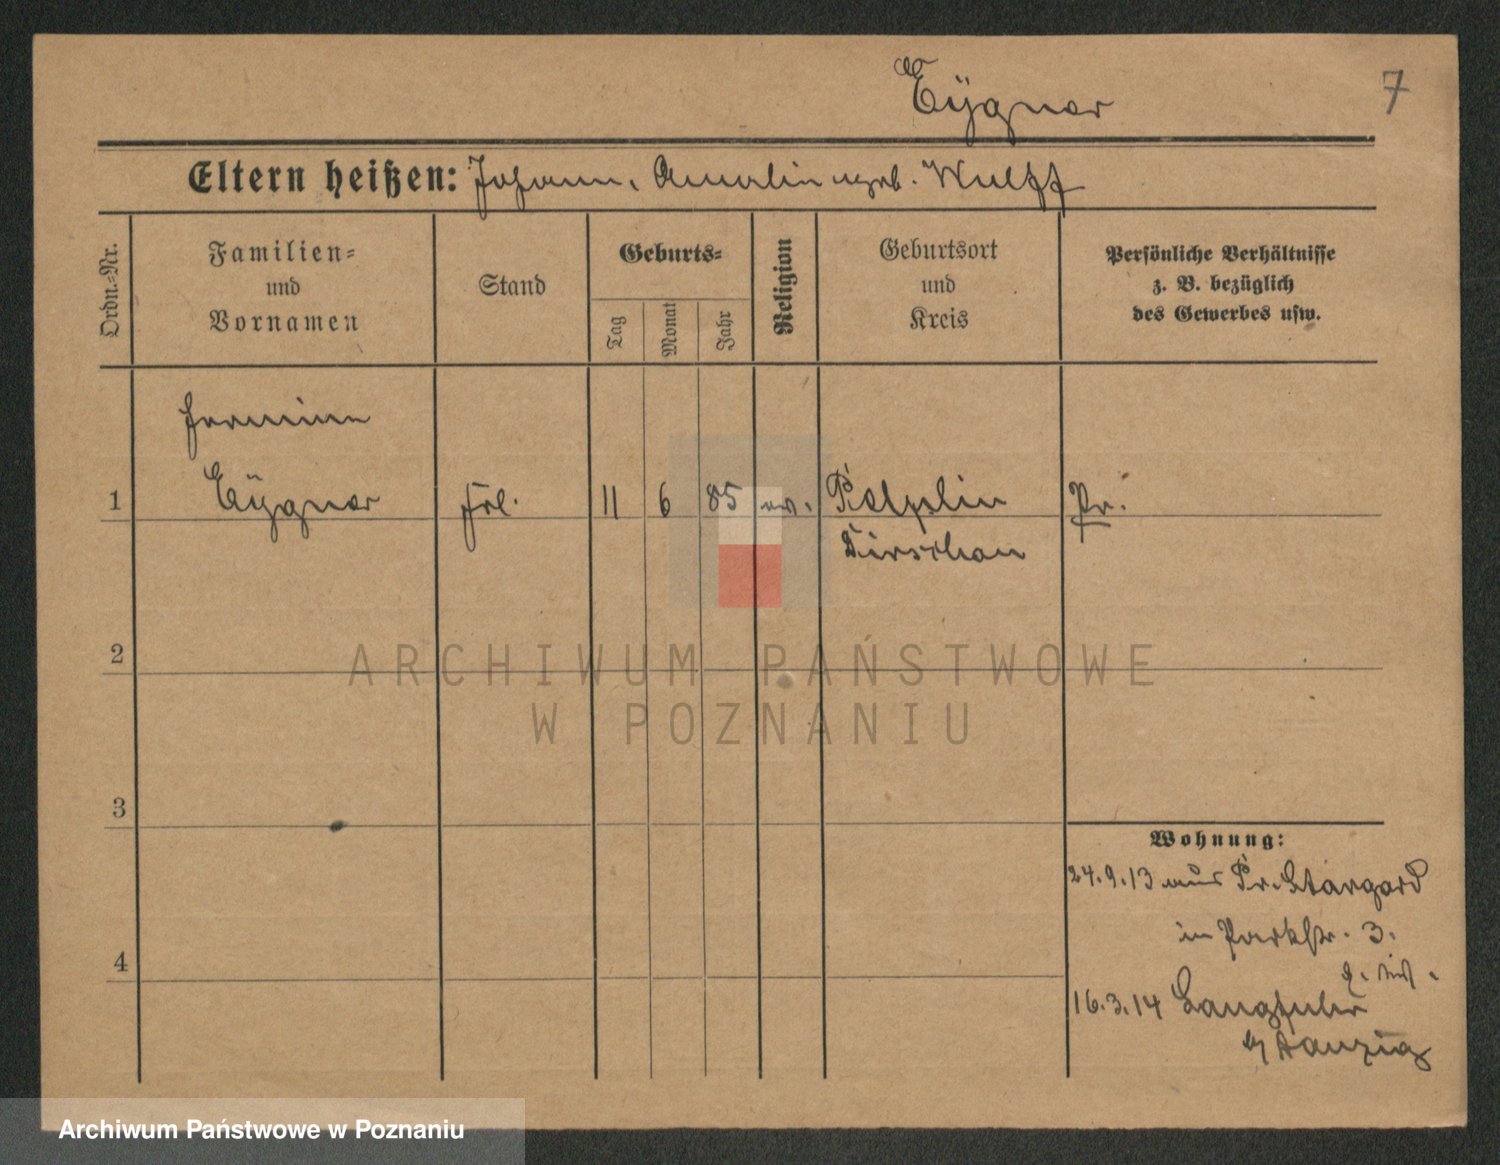 Eÿgnor
7
Eltern heißen: Johann, Amalie geb. Wulff
Ordn.-Nr.
Familien-
und
Vornamen
Stand
Geburts-
Tag
Monat
Jahr
Religion
Geburtsort
und
Kreis
Persönliche Verhältnisse
z. B. bezüglich
des Gewerbes usw.
Hermine
1 Eÿgnor Frl. 11 6 85 ev. Pelplin Pr.
Dirschau
2
3
4
Wohnung:
24.9.13 aus Pr. Stargard
in Parkstr. 3.
16.3.14 Langfuhr
b/ Danzig
ARCHIWUM PAŃSTWOWE
W POZNANIU
Archiwum Państwowe w Poznaniu